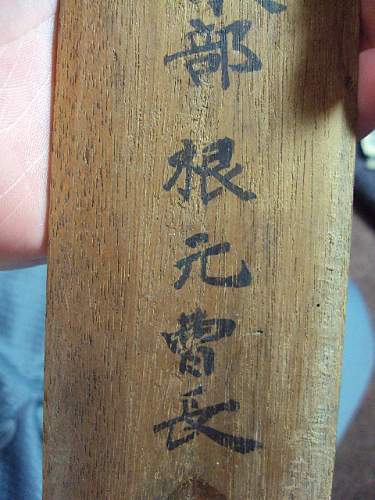 部 根元曹長